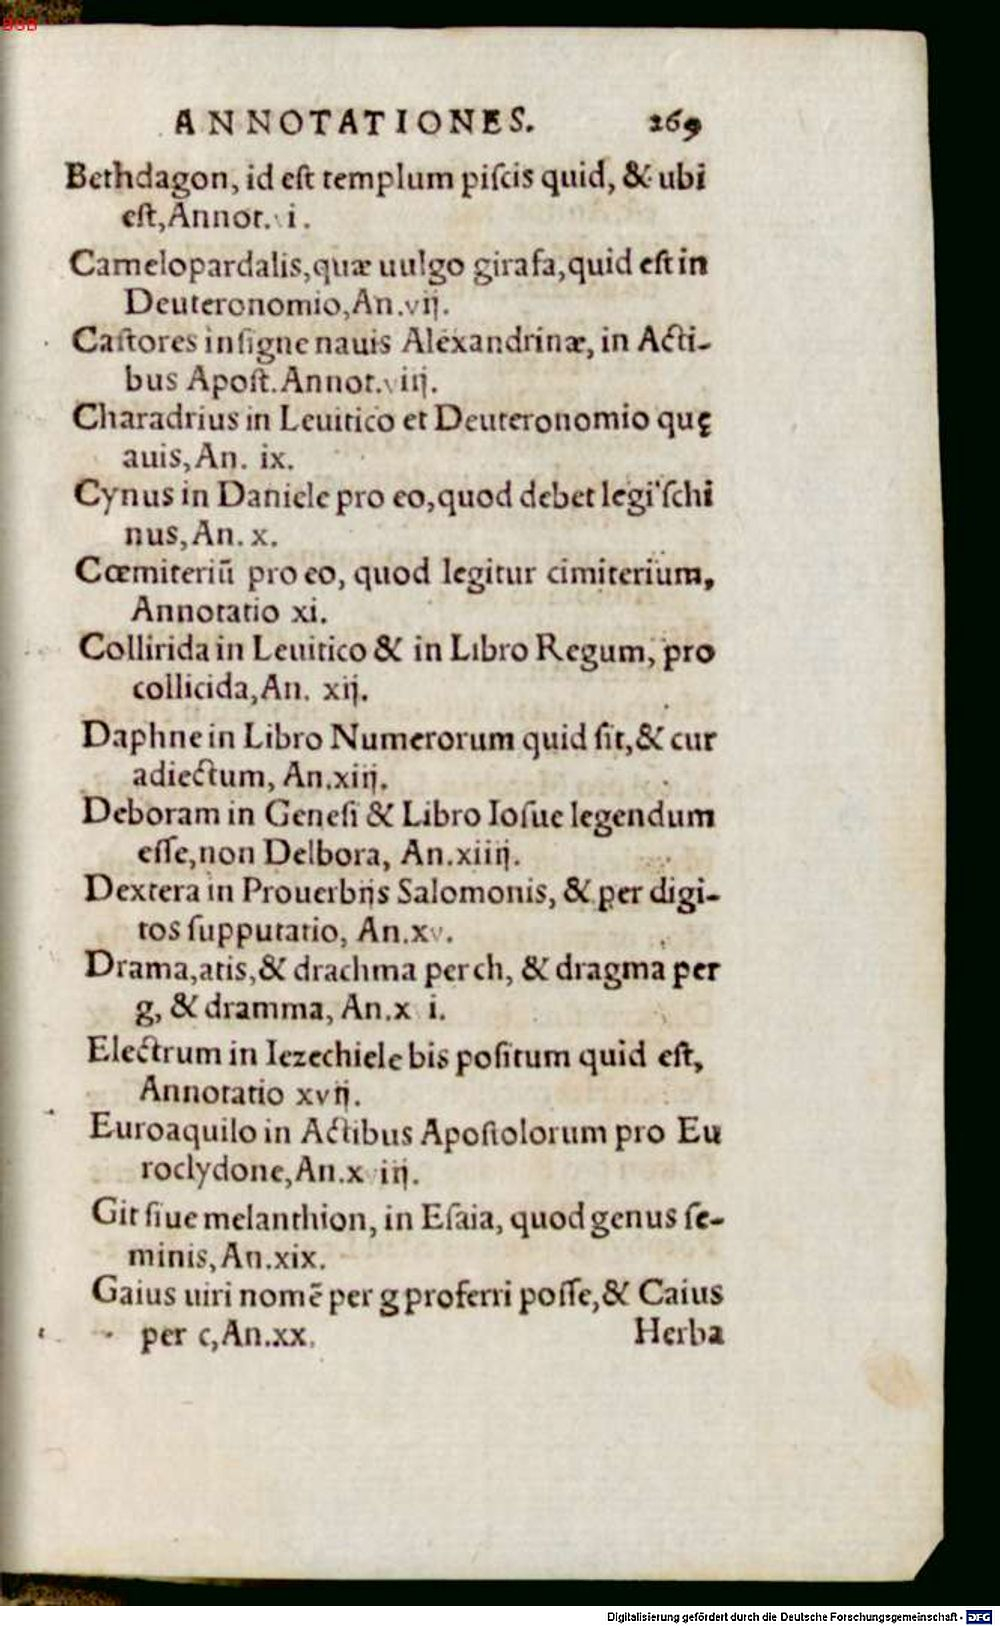 BSB
ANNOTATIONES. 269
Bethdagon, id est templum piscis quid, & ubi
est, Annot. vi.
Camelopardalis, quæ uulgo girafa, quid est in
Deuteronomio, An. vij.
Castores insigne nauis Alexandrinæ, in Acti-
bus Apost. Annot. viij.
Charadrius in Leuitico et Deuteronomio quę
auis, An. ix.
Cynus in Daniele pro eo, quod debet legi schi
nus, An. x.
Cœmiteriū pro eo, quod legitur cimiterium,
Annotatio xi.
Collirida in Leuitico & in Libro Regum, pro
collicida, An. xij.
Daphne in Libro Numerorum quid sit, & cur
adiectum, An. xiij.
Deboram in Genesi & Libro Iosue legendum
esse, non Delbora, An. xiiij.
Dextera in Prouerbijs Salomonis, & per digi-
tos supputatio, An. xv.
Drama, atis, & drachma per ch, & dragma per
g, & dramma, An. xvi.
Electrum in Iezechiele bis positum quid est,
Annotatio xvij.
Euroaquilo in Actibus Apostolorum pro Eu
roclydone, An. xviij.
Git siue melanthion, in Esaia, quod genus se-
minis, An. xix.
Gaius uiri nomē per g proferri posse, & Caius
per c, An. xx. Herba
Digitalisierung gefördert durch die Deutsche Forschungsgemeinschaft - DFG